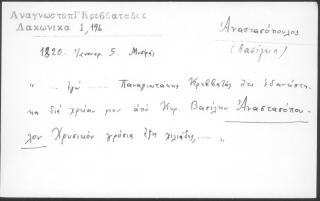 Αναγνωστοπ. Κρεββατάδες
Λακωνικα 1, 196
Ἀναστασόπουλος
(Βασίλης)
1820. Ἰανουαρ. 5. Μυσρᾶς
" ... ἐγὼ ...... Παναγιωτάκης Κρεββατᾶς ὅτι ἐδανείστη-
κα διὰ χρείαν μου ἀπὸ Κυρ. Βασίλην Ἀναστασόπου-
λον Χρυσικὸν γρόσια ἕξη χιλιάδες ..... "